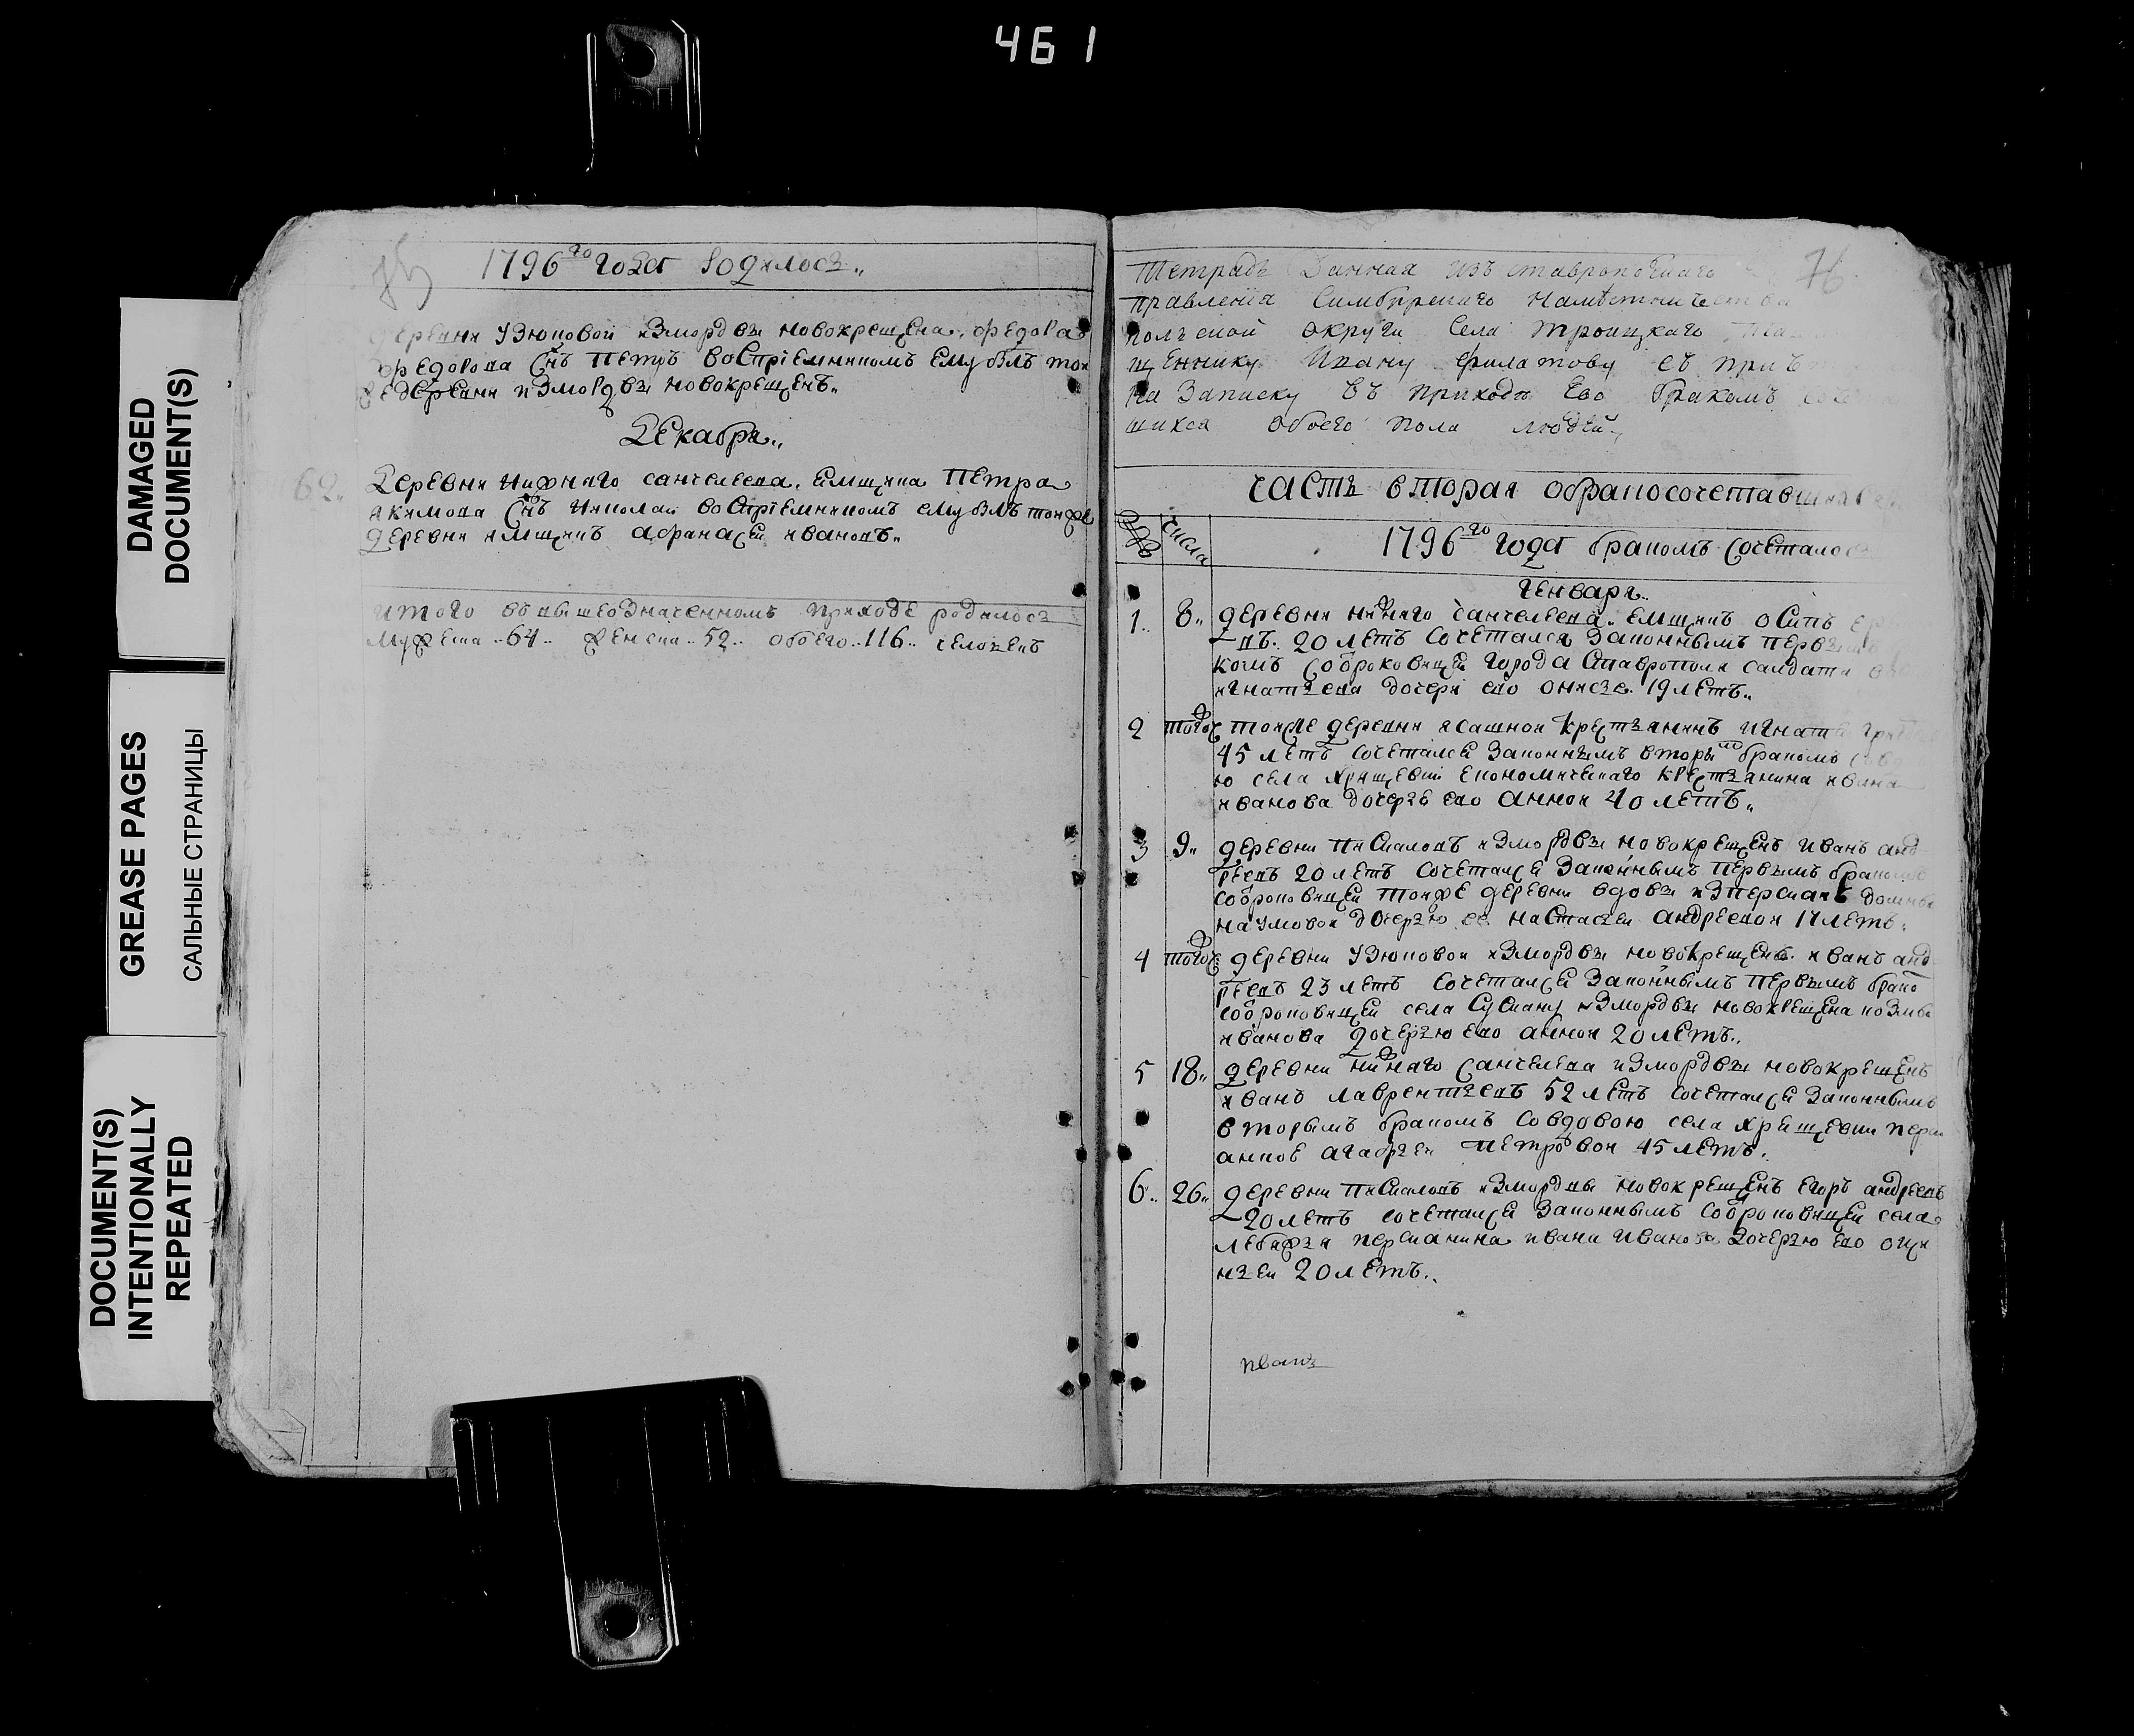 461
DAMAGED
DOCUMENT(S)
GREASE PAGES
САЛЬНЫЕ СТРАНИЦЫ
DOCUMENT(S)
INTENTIONALLY
REPEATED
1796го года родилось
деревни Узюковой измордвы новокрещена Федора
Федорова снъ Петръ воспрiемникомъ ему былъ той
же деревни измордвы новокрещенъ
Декабря
62
Деревни Нижнаго санчелеева емщика Петра
акимова снъ Николай воспрiемникомъ ему былъ тойже
деревни имщикъ афанасей ивановъ
итого въ вышеозначенномъ приходе родилось
Мужеска 64 женска 52 обоего 116 человекъ
76
Тетрадь Данная изъ ставропольскаго
правления Симбирскаго Намѣстничества
польской округи Села троицкаго
щеннику Ивану филатову съ
на Записку въ приходѣ Ево бракомъ
шихся обоего пола людей
часть вторая обракосочетавшихся
числа
1796го года бракомъ сочеталось
Генваря
1 8 деревни нижнаго санчелеева емщикъ осипъ
въ 20 летъ сочетался законнымъ первымъ
комъ соброковицей города Ставрополя салдата
игнатьева дочери ево 19 летъ
2 тогож тойже деревни ясашной крестьянинъ игнатей
45 летъ сочетался законнымъ вторымъ бракомъ
ю села хрящевки економическаго крестьянина ивана
иванова дочерью ево анной 40 летъ
3 9 деревни Пискаловъ измордвы новокрещенъ иванъ анд
реевъ 20 летъ сочетался законнымъ первымъ бракомъ
соброковицей тойже деревни вдовы
наумовой дочерью ее настасьей андреевой 17 летъ
4 тогож деревни Узюковой измордвы новокрещенъ иванъ анд
реевъ 23 летъ сочетался законнымъ первымъ брако
соброковицей села Сускану измордвы новокрещена козмы
иванова дочерью ево анной 20 летъ
5 18 деревни нижнаго санчелеева измордвы новокрещенъ
иванъ лаврентьевъ 52 летъ сочетался законнымъ
вторымъ бракомъ совдовою села хрящевки
агафьей Петровой 45 летъ
6 26 деревни Пискаловъ измордвы новокрещенъ егоръ андреевъ
20 летъ сочетался законнымъ соброковицей села
лебяжья ивана иванова дочерью ево
20 летъ